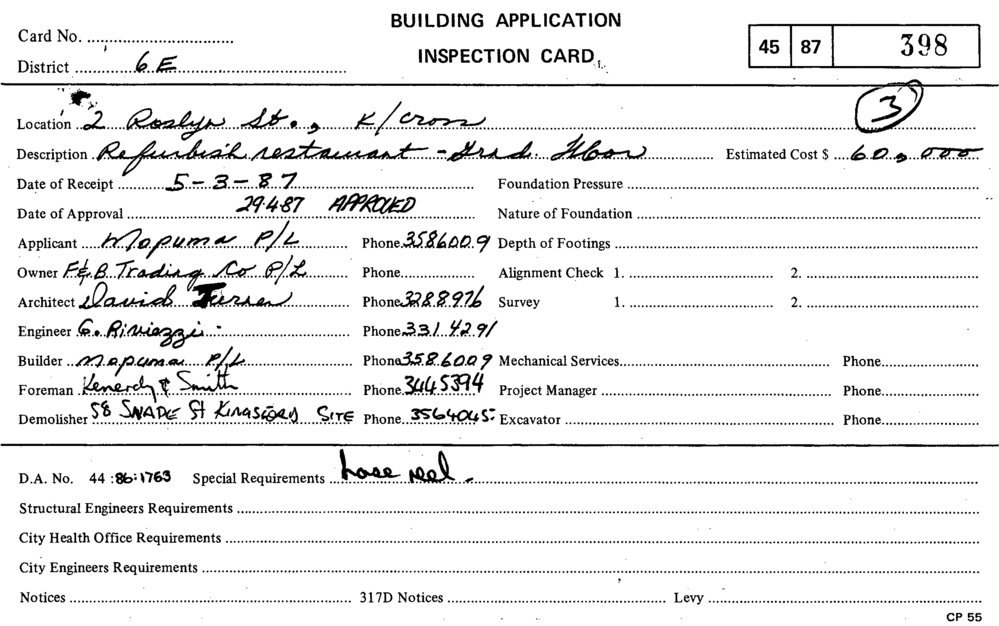 BUILDING APPLICATION
INSPECTION CARD
Card No.
District 6E
45 87 398
3
Location 2 Roslyn St., K/Cross
Description Refurbish restaurant - Grnd. Floor Estimated Cost $ 60,000
Date of Receipt 5-3-87 Foundation Pressure
Date of Approval 29487 APPROVED Nature of Foundation
Applicant Mopuma P/L Phone 3586009 Depth of Footings
Owner F&B Trading Co P/L Phone Alignment Check 1. 2.
Architect David Phone 3288976 Survey 1. 2.
Engineer G. Riviezzi Phone 331 4291
Builder Mopuma P/L Phone 3586009 Mechanical Services Phone
Foreman & Smith Phone 3445394 Project Manager Phone
Demolisher 58 St SITE Phone 3564045 Excavator Phone
D.A. No. 44:86:1763 Special Requirements hose reel.
Structural Engineers Requirements
City Health Office Requirements
City Engineers Requirements
Notices 317D Notices Levy
CP 55